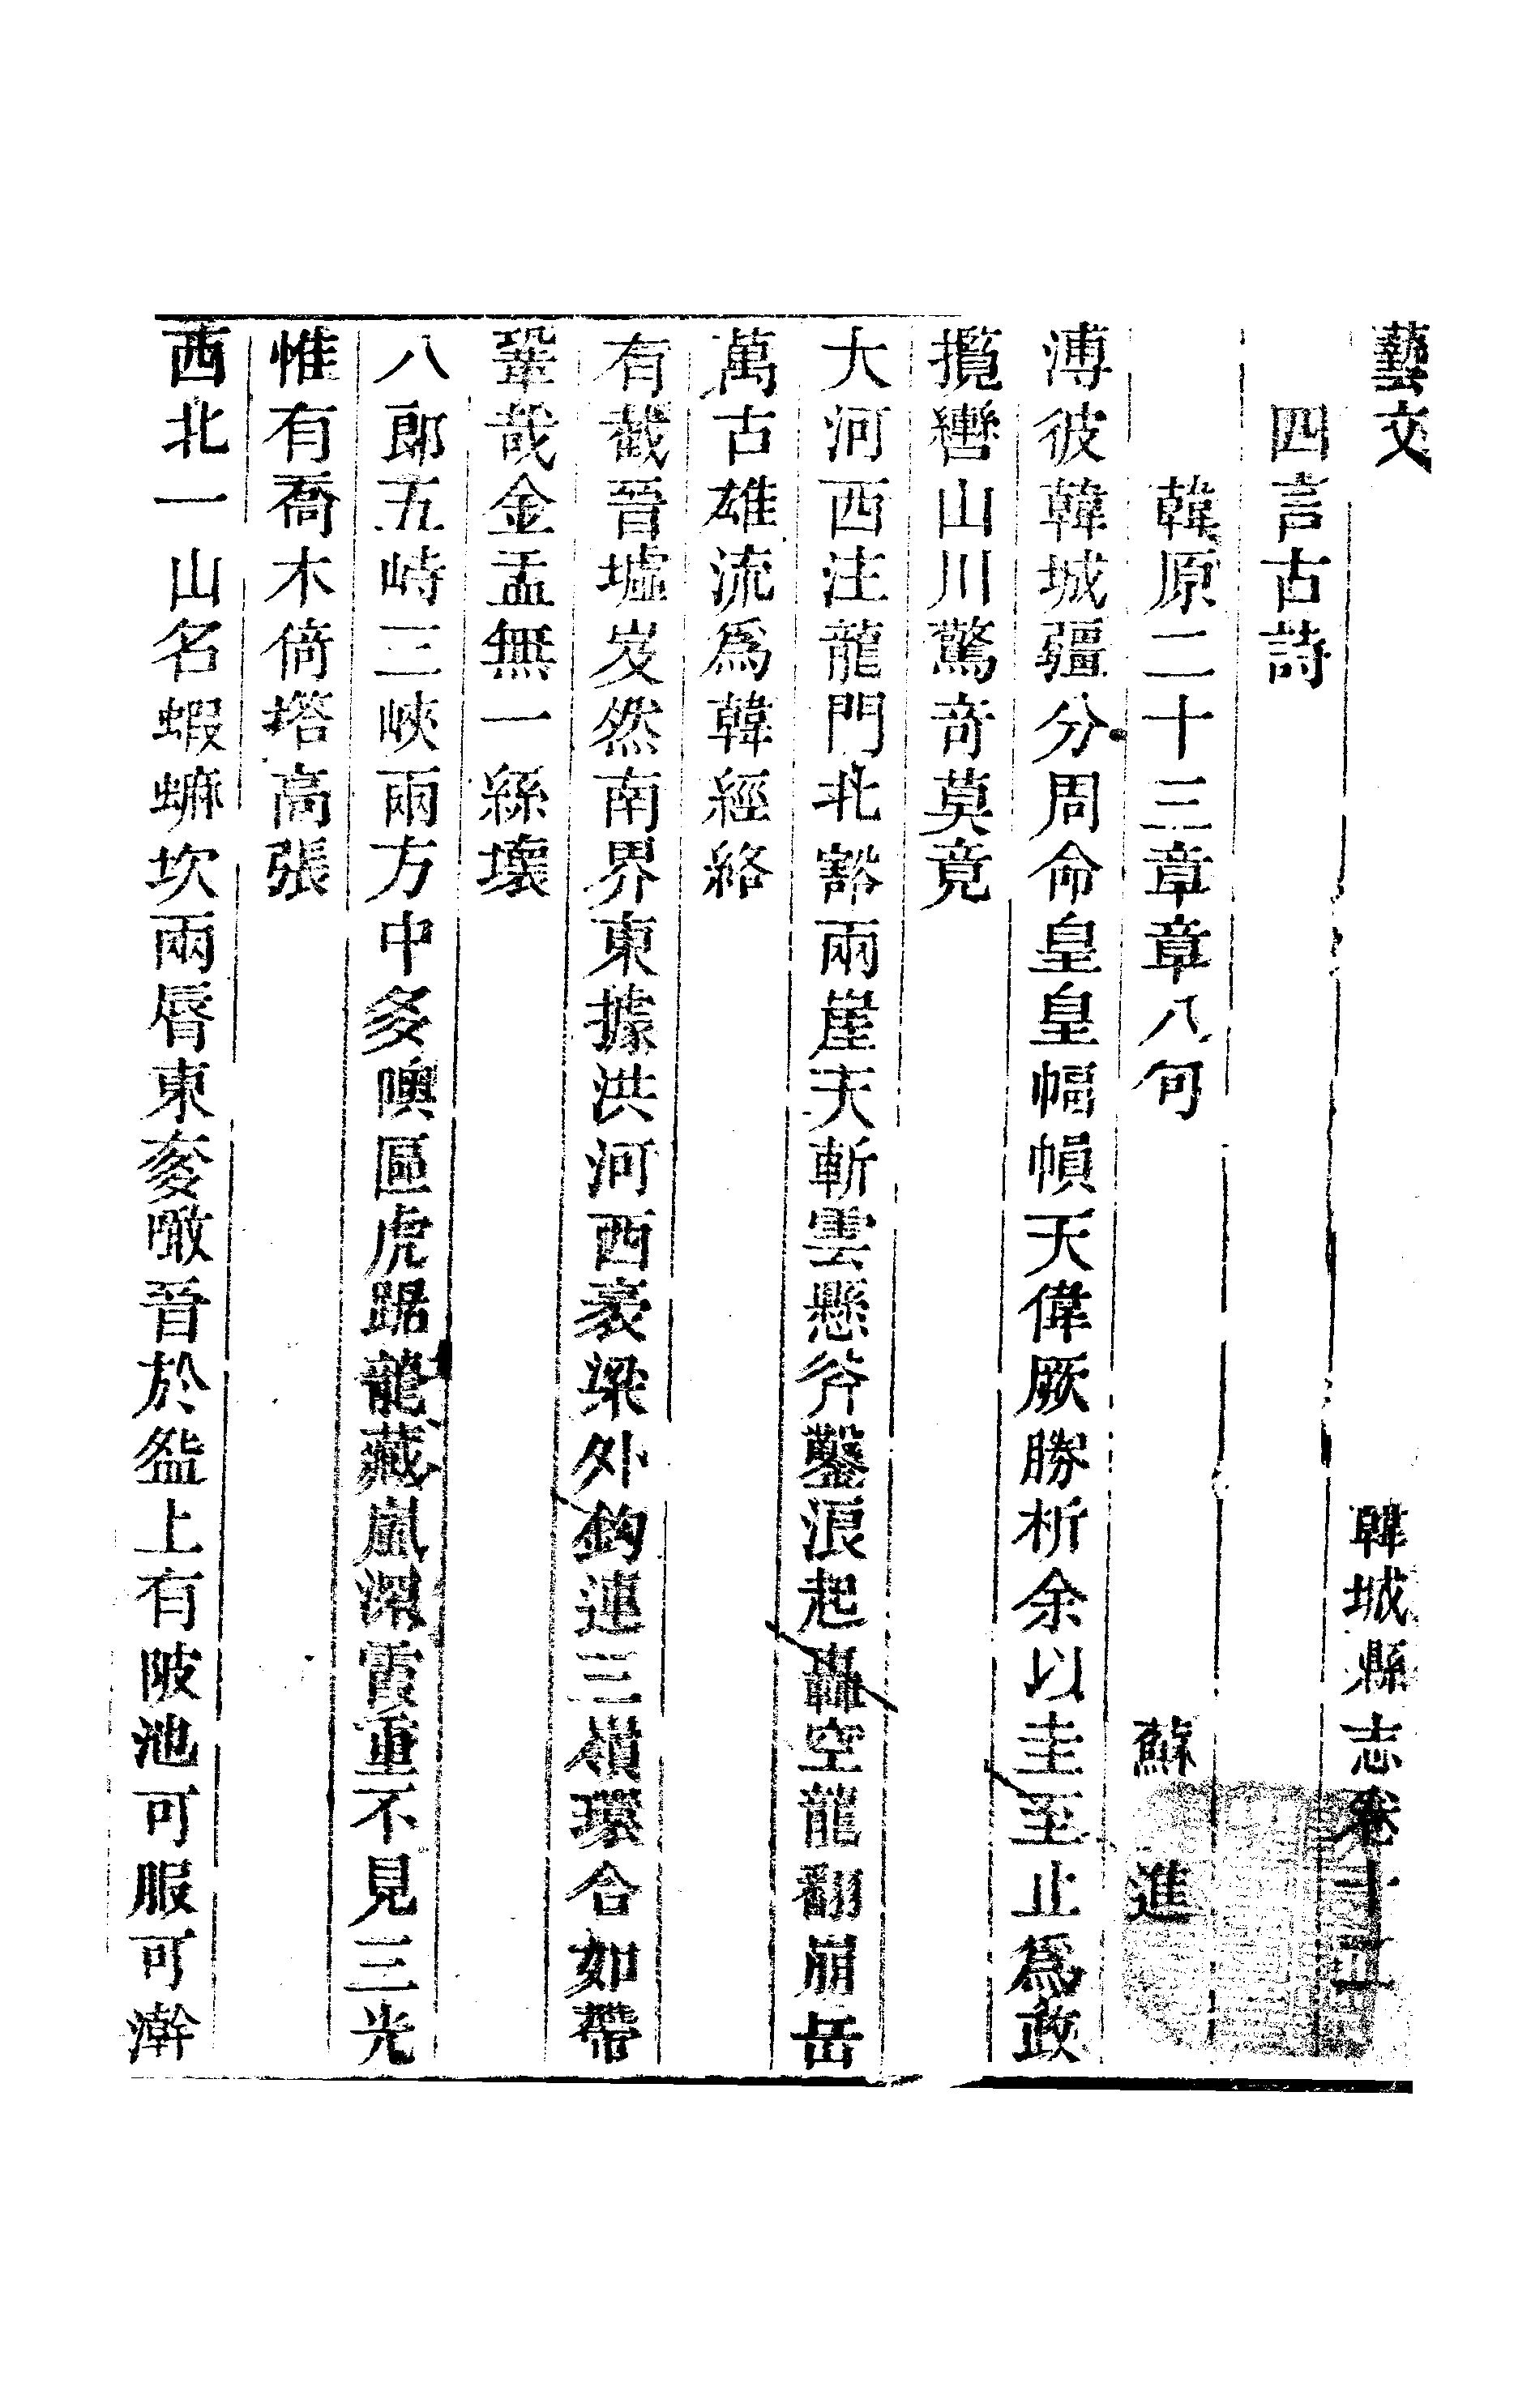 藝文 韓城縣志卷十五
四言古詩
韓原二十三章章八句 蘇進
溥彼韓城疆分周命皇皇幅幀天偉厥勝析余以圭至止爲政
攬轡山川驚奇莫竟
大河西注龍門北豁兩崖天斬雲懸斧鑿浪起轟空龍翻崩岳
萬古雄流爲韓經絡
有截晉墟岌然南界東據洪河西表梁外鈎連三嶺環合如帶
鞏哉金盂無一絲壞
八郎五峙三峽兩方中多噢區虎踞龍藏嵐深霞重不見三光
惟有喬木倚塔高張
西北一山名蝦蟆坎兩唇東奓瞰晉於上有陂池可服可澣